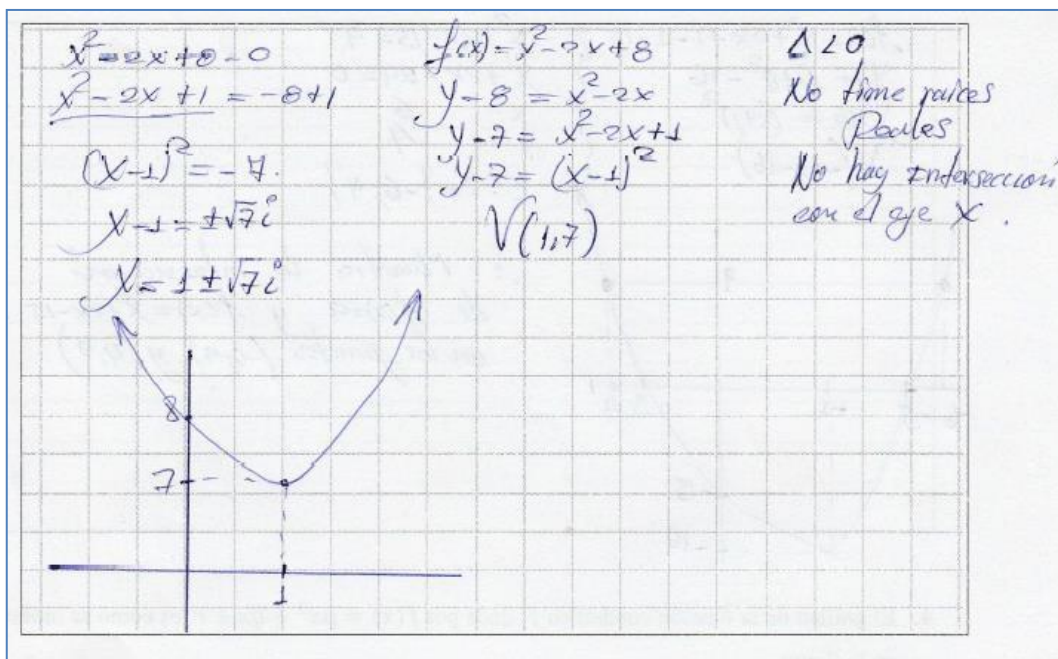 x² - 2x + 8 = 0
x² - 2x + 1 = -8+1
(x-1)² = -7.
x-1 = ±√7i
x = 1 ± √7i
f(x) = x² - 2x + 8
y-8 = x² - 2x
y-7 = x² - 2x + 1
y-7 = (x-1)²
V(1,7)
Δ < 0
No tiene raices
Reales
No hay intersección
con el eje X.
8
7
1